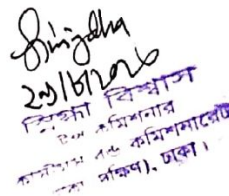 Snigdha
স্নিগ্ধা বিশ্বাস
উপ কমিশনার
কাস্টমস বন্ড কমিশনারেট
দক্ষিণ), ঢাকা।